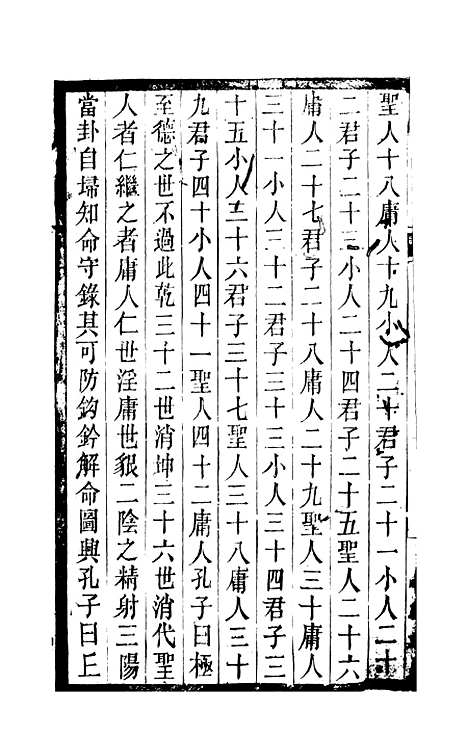 聖人十八庸人十九小人二十君子二十一小人二十
二君子二十三小人二十四君子二十五聖人二十六
庸人二十七君子二十八庸人二十九聖人三十庸人
三十一小人三十二君子三十三小人三十四君子三
十五小人三十六君子三十七聖人三十八庸人三十
九君子四十小人四十一聖人四十二庸人孔子曰極
至德之世不過此乾三十二世消坤三十六世消代聖
人者仁繼之者庸人仁世淫庸世貇二陰之精射三陽
當卦自埽知命守錄其可防鈎鈐解命圖興孔子曰丘